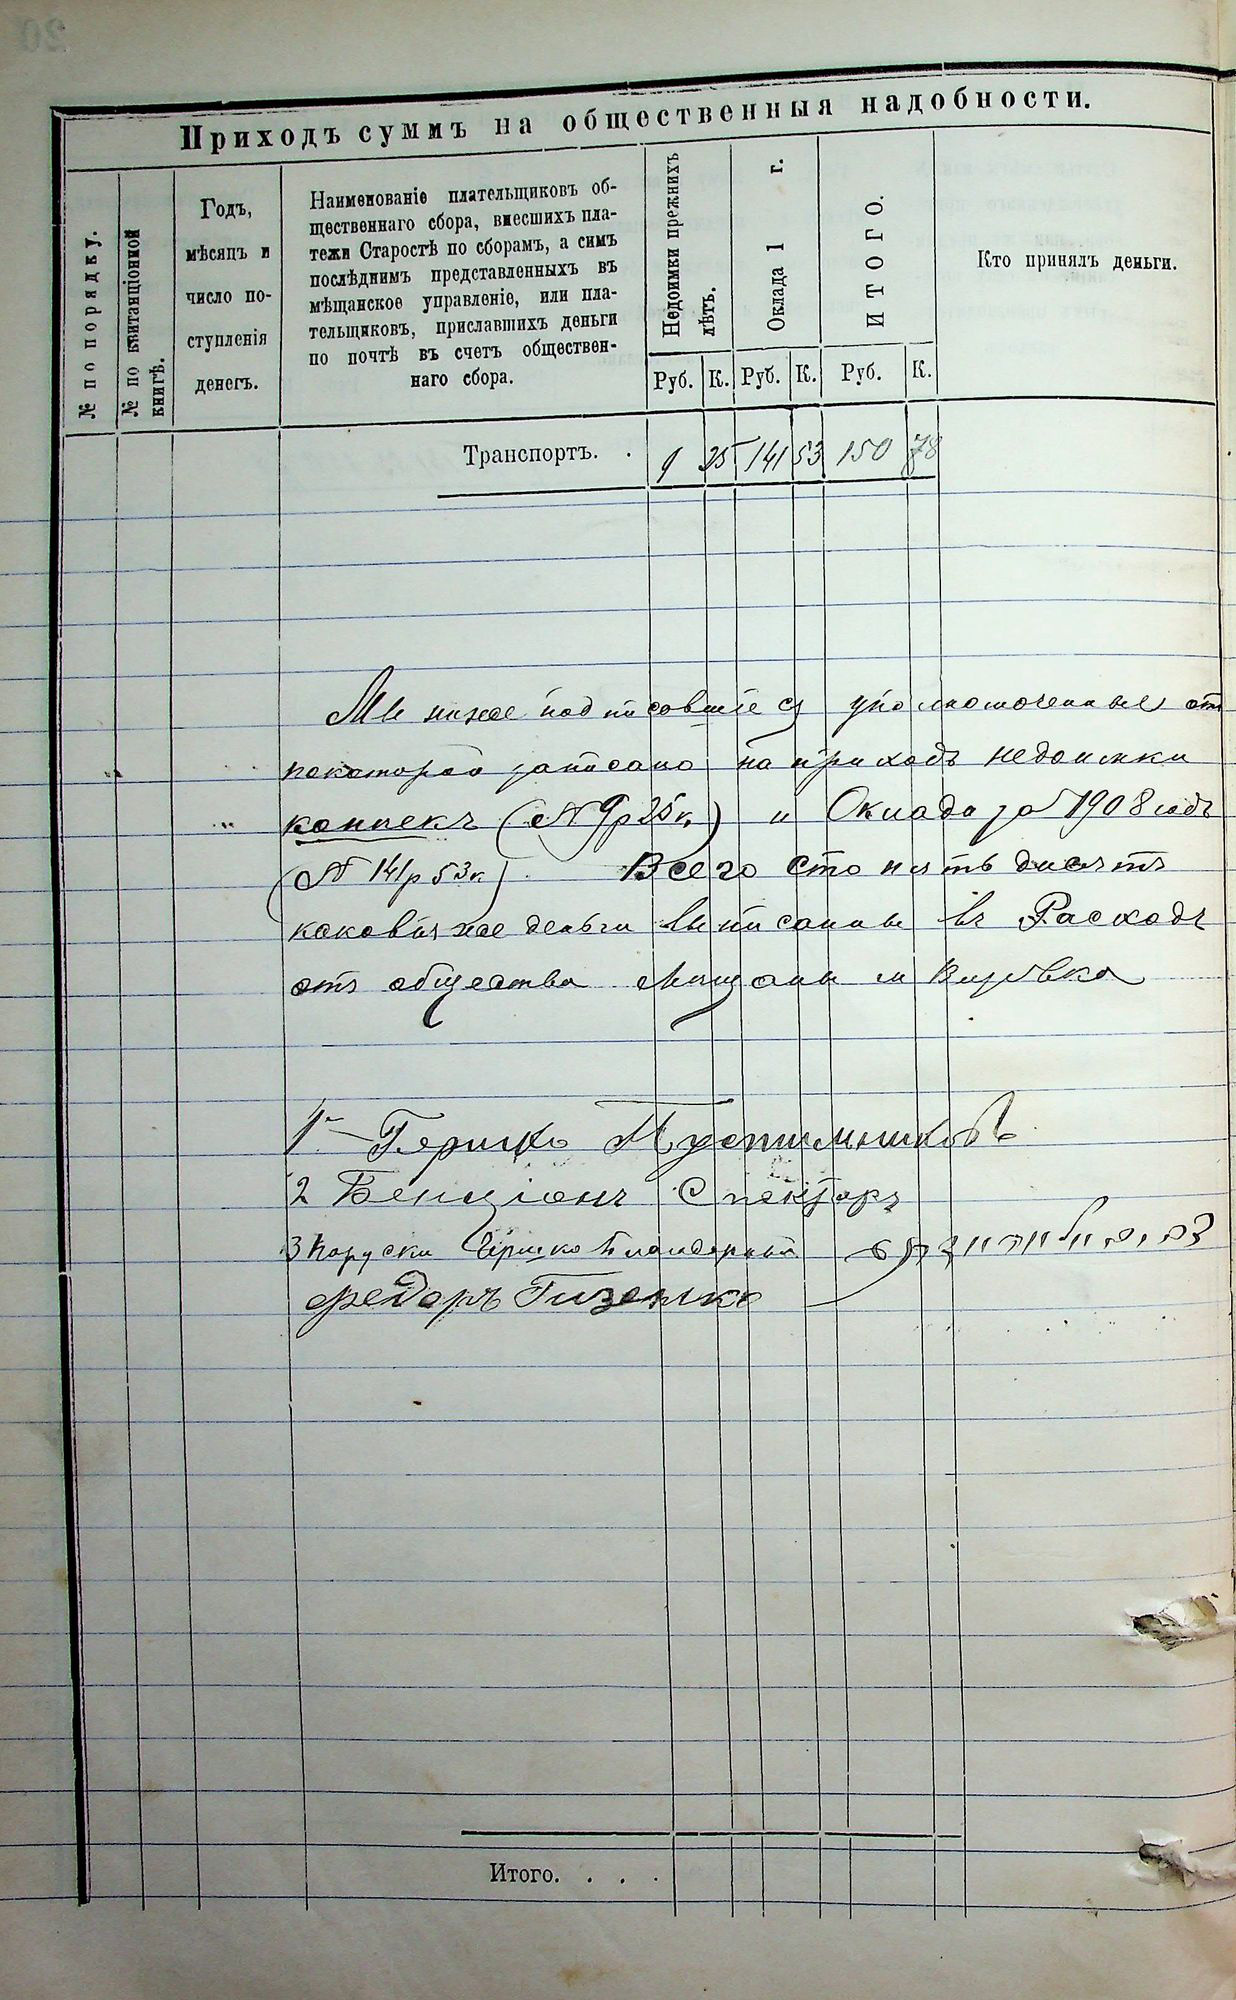 Приходъ суммъ на общественныя надобности.
№ по порядку.
№ по квитанціонной
книгѣ.
Годъ,
мѣсяцъ и
число по-
ступленія
денегъ.
Наименованіе плательщиковъ об-
щественнаго сбора, внесшихъ пла-
тежи Старостѣ по сборамъ, а симъ
послѣднимъ представленныхъ въ
мѣщанское управленіе, или пла-
тельщиковъ, приславшихъ деньги
по почтѣ въ счетъ обществен-
наго сбора.
Недоимки прежнихъ
лѣтъ.
Оклада 1 г.
ИТОГО.
Кто принялъ деньги.
Руб. К. Руб. К. Руб. К.
Транспортъ. . 9 25 141 53 150 78
Мы ниже подписовшіеся уполномоченные от
покоторой записано на приходъ недоимки
копѣекъ (9р 25к) и Оклада за 1908 годъ
(141р 53к) Всего сто пятьдисятъ
каковыя же деньги выписанны въ Расходъ
отъ общества мѣщанъ м
1 Гершко
2 Бенціонъ Спекторъ
3 Гершко
Федоръ
Итого. . . .